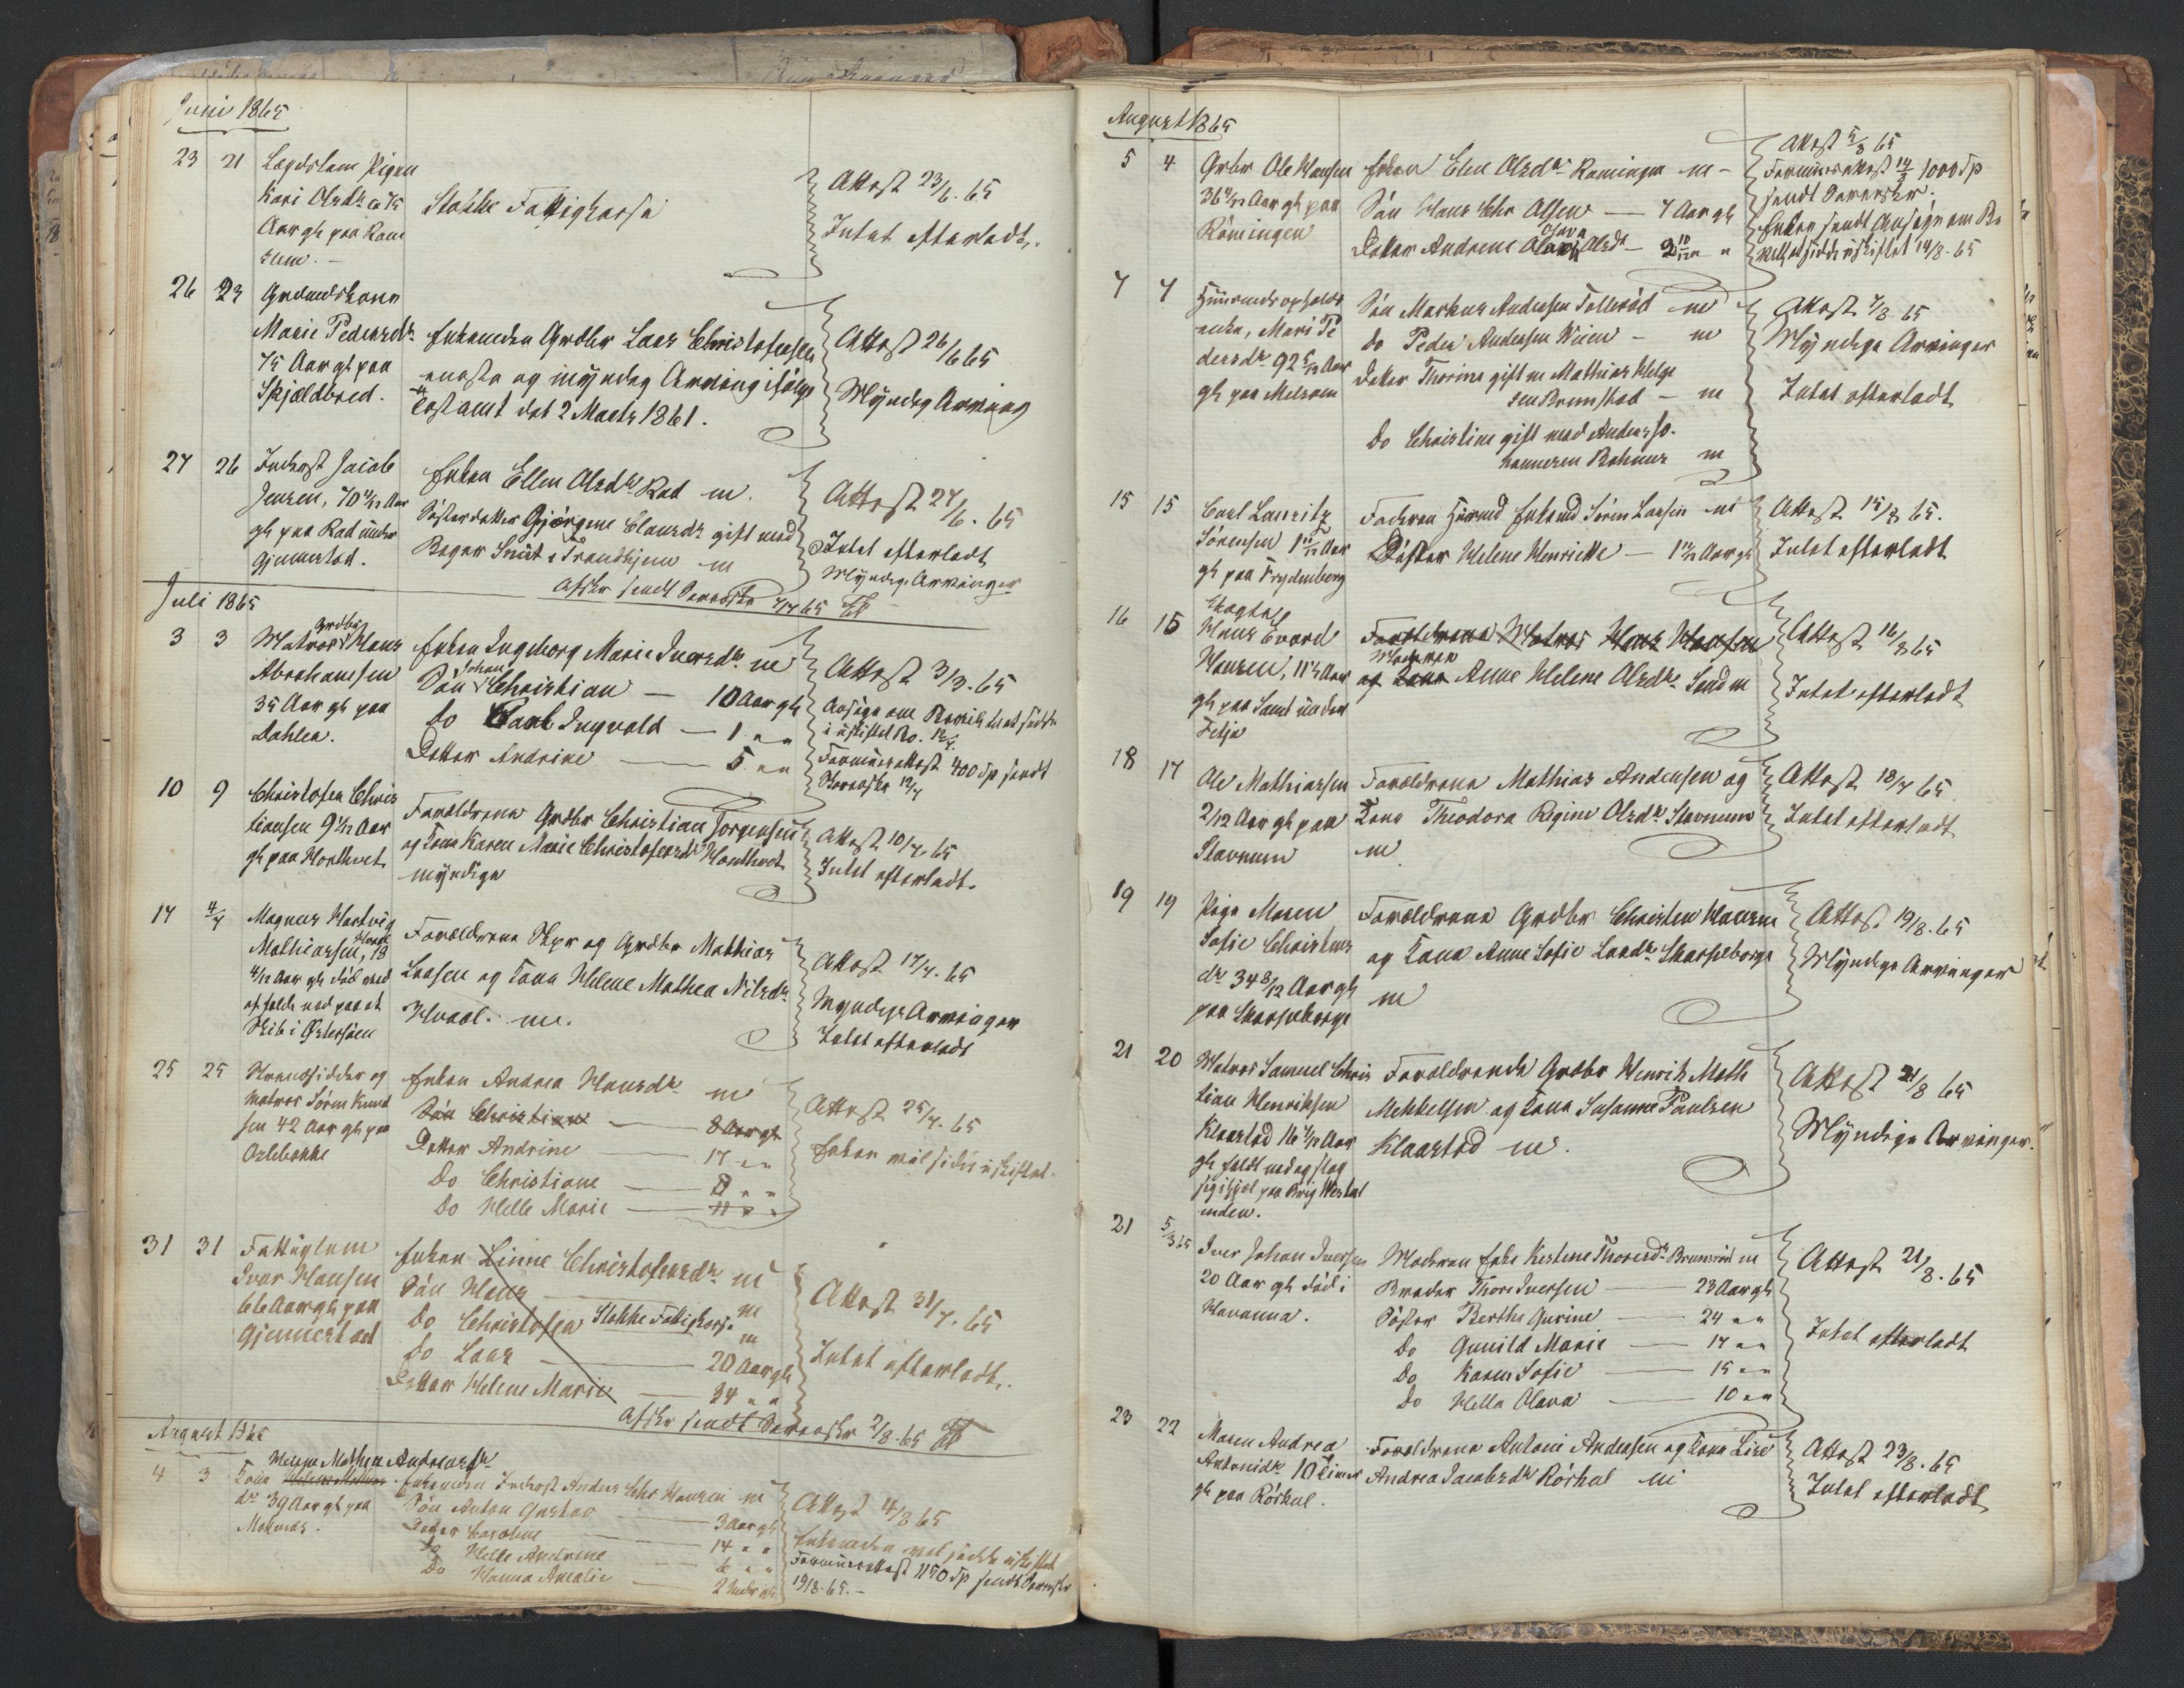 Juni 1865
23 21 Lægdslem Pigen
Kari Olsdr ca 75
Aar gl paa Ram
sum. –
Stokke Fattigkasse
Attest 23/6. 65
Intet efterladt.
26 23 Grdmdskone
Marie Pedersdr
75 Aar gl paa
Skjældbred.
Enkemden Grdbr Lars Christofersen
eneste og myndig Arving ifølge
Testamt dat 2 Marts 1861.
Attest 26/6 65
Myndig Arving
27 26 Inderst Jacob
Jensen, 70 Aar
gl paa Rad under
Gjennestad.
Enken Ellen Olsdr Rad m.
Søsterdatter Gjørgine Clausdr gift med
Bager Snut i Trondhjem m
Attest 27/6. 65
Intet efterladt
Myndige Arvinger
Afskr sendt Sorenskr 7/7 65
Juli 1865
3 3 Matros Grdbr Hans
Abrahamsen
35 Aar gl paa
Dahlen.
Enken Ingeborg Marie Iversdr m
Søn Johan Christian — 10 Aar gl
Do Carl Ingvald — 1 " "
Datter Andrine — 5 " "
Attest 3/7. 65
Ansøgn om Bevil. til at sidde
i uskiftet Bo. 12/7.
Formuesattest 400 Sp sendt
Sorenskr 12/7
10 9 Christofer Chris
tiansen 9 1/12 Aar
gl paa Horthvet
Forældrene Grdbr Christian Jørgensen
og Kone Karen Marie Christofersdr Horthvet
myndige
Attest 10/7. 65
Intet efterladt.
17 4/7 Magnus Hartvig
Mathiassen, Hvaal 18
4/12 Aar gl død ved
at falde ned paa et
Skib i Østersøen
Forældrene Skpr og Grdbr Mathias
Larsen og Kone Helene Mathea Nilsdr
Hvaal. m.
Attest 17/7. 65
Myndige Arvinger
Intet efterladt
25 25 Strandsidder og
Matros Søren Knud
sen 42 Aar gl paa
Oslebakke
Enken Andrea Hansdr m
Søn Christian — 8 Aar gl
Datter Andrine — 17 " "
Do Christiane — 8 " "
Do Helle Marie — 11 " "
Attest 25/7. 65
Enken vil sidde i uskiftet
31 31 Fattiglem
Ivar Hansen
66 Aar gl paa
Gjennestad
Enken Linne Christofersdr m
Søn Hans m
Do Christofer Stokke Fattigkasse m
Do Lars — 20 Aar gl
Datter Helene Marie — 24 " "
Attest 31/7. 65
Intet efterladt.
Afskr sendt Sorenskr 2/8. 65
August 1865
Helene Mathea Andreasdr
4 3 Kone Helene Mathea
dr 39 Aar gl paa
Melsnæs.
Enkemden Inderst Anders Chr Hansen m
Søn Anton Gustav — 3 Aar gl
Datter Caroline — 14 " "
Do Helle Andrine — 6 " "
Do Hanna Amalie — 2 Under gl
Attest 4/8 65
Enkemden vil sidde i uskiftet
Formuesattest 1150 Sp sendt Sorenskr
19/8. 65. –
August 1865
5 4 Grbr Ole Hansen
36 Aar gl paa
Røningen
Enken Elen Olsdr Røningen m –
Søn Hans Chr Olsen — 7 Aar gl
Datter Andrene Olava Olsdr – 2 10/12 " "
Attest 5/8 65
Formuesattest 14/8 1000 Sp
sendt Sorenskr.
Enken sendt Ansøgn om Be
vill at sidde i uskiftet 14/8. 65
7 7 Huusmdsopholds
enke, Mari Pe
dersdr 92 5/12 Aar
gl paa Melsom
Søn Markus Andersen Tollerød m
Do Peder Andersen Wien – m
Datter Thorine gift m Mathias Helge
sen Brunstad – m
Do Christine gift med Anders Jo
hannesen Bohmer m
Attest 7/8. 65
Myndige Arvinger
Intet efterladt
15 15 Carl Lauritz
Sørensen 1 Aar
gl paa Frydenberg
Faderen Husmd Enkemd Søren Larsen m
Søster Helene Henriette — 1 Aar gl
Attest 15/8 65.
Intet efterladt
16 15 Uægte
Hans Evard
Hansen, 11 Aar
gl paa Sand under
Felja
Forældrene Matros Hans Hansen
Moderen
og Kone Anne Helene Olsdr Sand m
Attest 16/8 65
Intet efterladt
18 17 Ole Mathiassen
2/12 Aar gl paa
Stavnum
Forældrene Mathias Andersen og
Kone Theodora Regine Olsdr Stavnum
m
Attest 18/7 65
Intet efterladt
19 19 Pige Maren
Sofie Christens
dr 34 8/12 Aar gl
paa Skarpeborge
Forældrene Grdbr Christen Hansen
og Kone Anne Sofie Larsdr Skarpeborge
m
Attest 19/8. 65
Myndige Arvinger
21 20 Matros Samuel Chris
tian Henriksen
Klaastad 16 Aar
gl faldt ned og slog
sig ihjel paa Brig Westal
inden.
Forældrende Grdbr Henrik Math
Mekkelsen og Kone Susanne Paulsen
Klaastad m.
Attest 21/8 65
Myndige Arvinger.
21 5/3 65 Iver Johan Iversen
20 Aar gl død i
Havanna.
Moderen Enke Kirstine Thoresdr Brunsrød m
Broder Thore Iversen — 23 Aar gl
Søster Berthe Gurine — 24 " "
Do Gunild Marie — 17 " "
Do Karen Sofie — 15 " "
Do Hella Olava — 10 " "
Attest 21/8. 65
Intet efterladt
23 22 Maren Andrea
Antonidr 10 Timer
gl paa Rørkol.
Forældrene Antoni Andersen og Kone Lise
Andrea Jacobsdr Rørkol m
Attest 23/8. 65
Intet efterladt